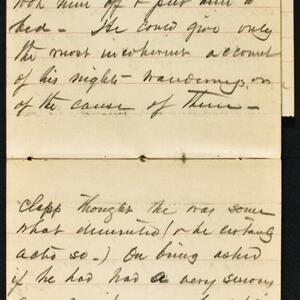 took him off & put him to
bed – He could give only
the most incoherent account
of his nights – wanderings, or
of the cause of them –
Clapp thought he was some
what demented (& he certainly
acted so –) On being asked
if he had had a very serious